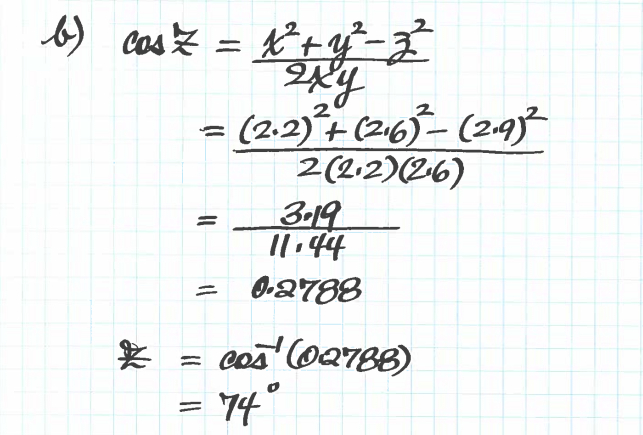 b) cos Z = x² + y² - z² / 2xy
= (2.2)² + (2.6)² - (2.9)² / 2(2.2)(2.6)
= 3.19 / 11.44
= 0.2788
Z = cos⁻¹(0.2788)
= 74°